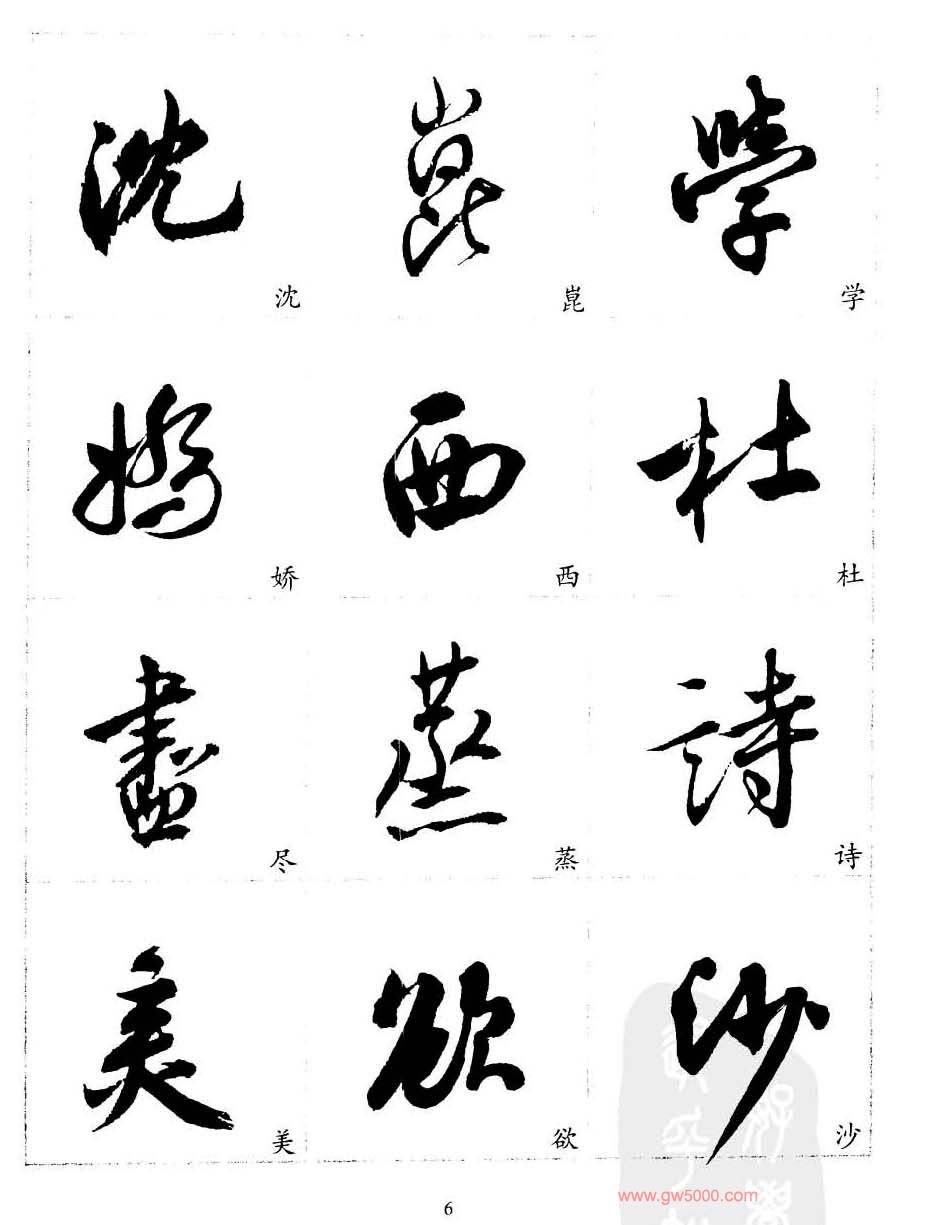 沈 崑 學
沈 崑 学
嬌 西 杜
娇 西 杜
盡 蒸 詩
尽 蒸 诗
美 欲 沙
美 欲 沙
www.gw5000.com
6